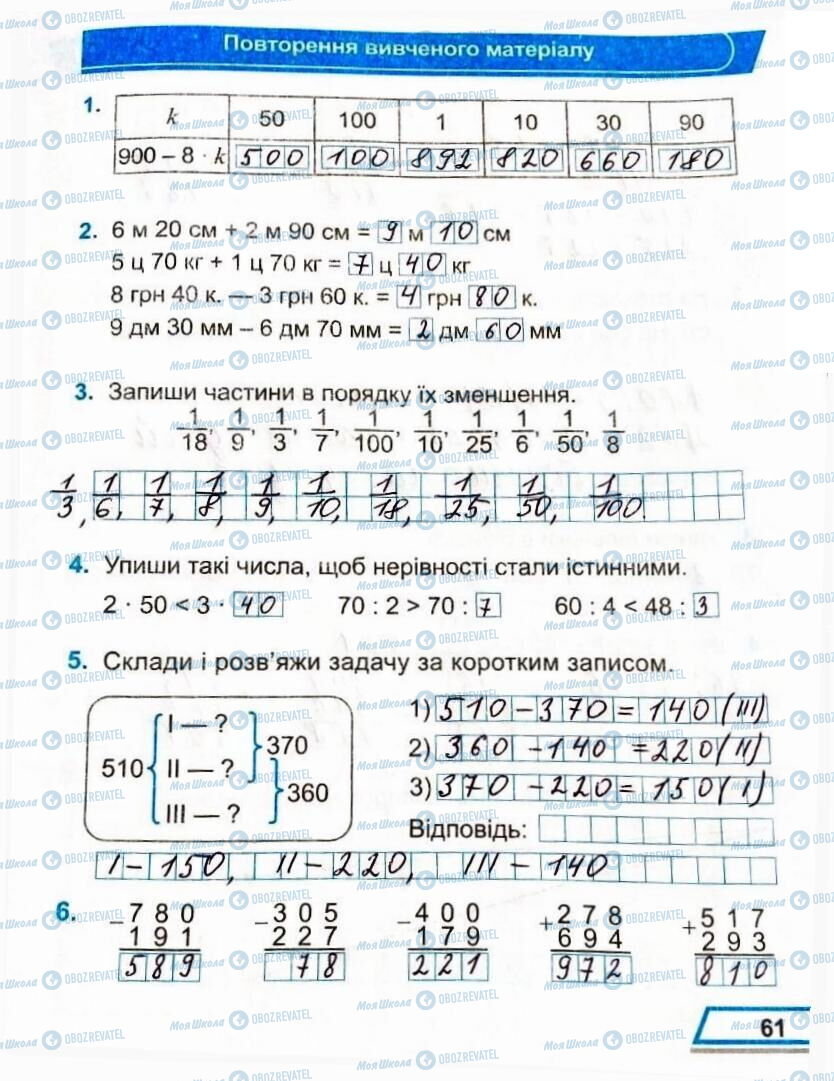 Повторення вивченого матеріалу
1.
k 50 100 1 10 30 90
900 – 8 · k 500 100 892 820 660 180
2. 6 м 20 см + 2 м 90 см = 9 м 10 см
5 ц 70 кг + 1 ц 70 кг = 7 ц 40 кг
8 грн 40 к. — 3 грн 60 к. = 4 грн 80 к.
9 дм 30 мм – 6 дм 70 мм = 2 дм 60 мм
3. Запиши частини в порядку їх зменшення.
1/18, 1/9, 1/3, 1/7, 1/100, 1/10, 1/25, 1/6, 1/50, 1/8
1/3, 1/6, 1/7, 1/8, 1/9, 1/10, 1/18, 1/25, 1/50, 1/100.
4. Упиши такі числа, щоб нерівності стали істинними.
2 · 50 < 3 · 40 70 : 2 > 70 : 7 60 : 4 < 48 : 3
5. Склади і розв'яжи задачу за коротким записом.
510 I — ? II — ? III — ? 370 360
1) 510 – 370 = 140 (III)
2) 360 – 140 = 220 (II)
3) 370 – 220 = 150 (I)
Відповідь:
I – 150, II – 220, III – 140
6.
– 780 – 305 – 400 + 278 + 517
191 227 179 694 293
589 78 221 972 810
61
МояШкола OBOZREVATEL